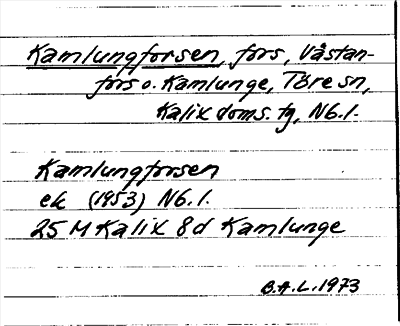 Kamlungforsen, fors, Västan-
fors o. Kamlunge, Töre sn,
Kalix doms. tg, Nb.l.
Kamlungforsen
ek (1953) Nb.l.
25 M Kalix 8d Kamlunge
B.A.L. 1973